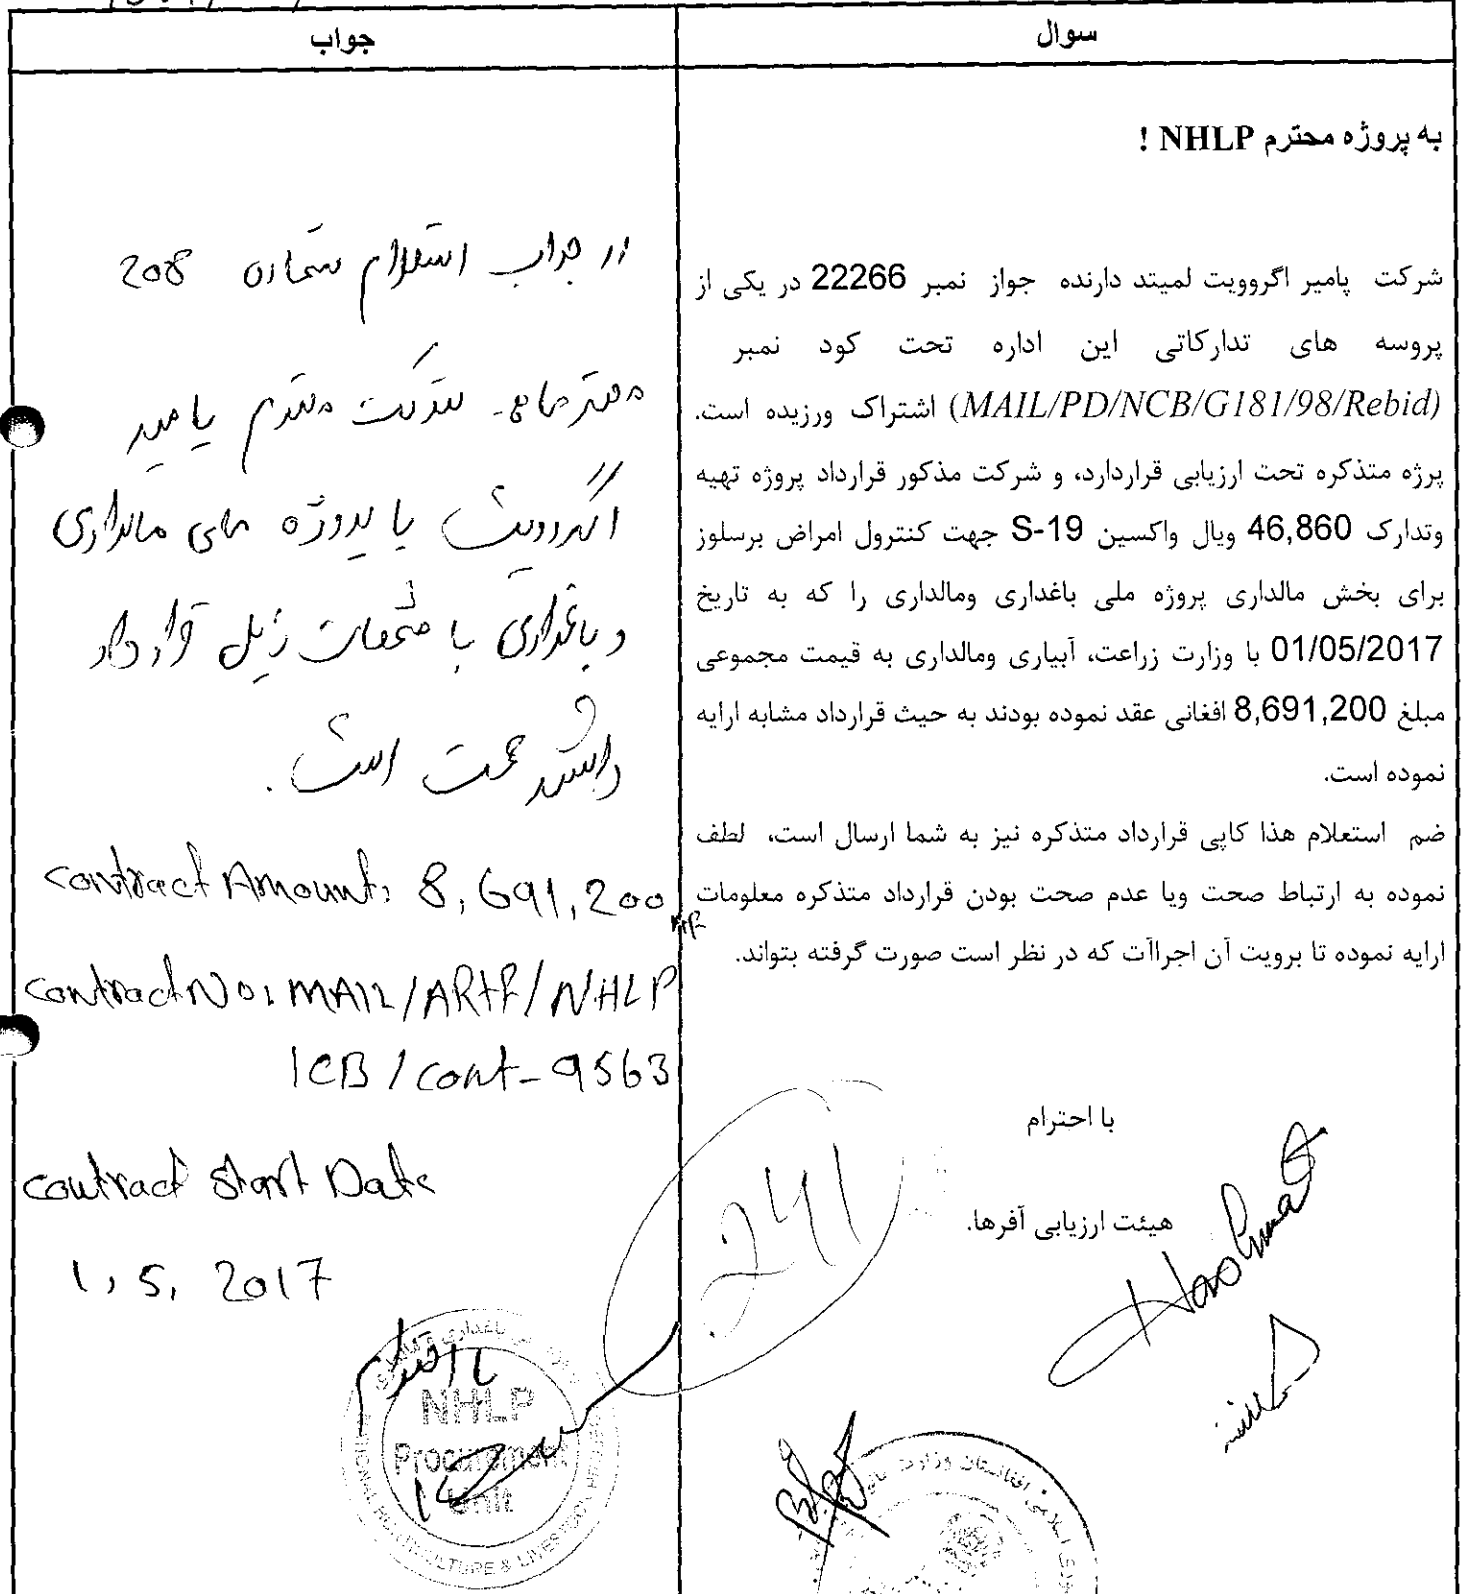 سوال
به پروژه محترم NHLP !
شرکت پامیر اگروویت لمیتد دارنده جواز نمبر 22266 در یکی از
پروسه های تدارکاتی این اداره تحت کود نمبر
(MAIL/PD/NCB/G181/98/Rebid) اشتراک ورزیده است.
پرژه متذکره تحت ارزیابی قراردارد، و شرکت مذکور قرارداد پروژه تهیه
وتدارک 46,860 ویال واکسین S-19 جهت کنترول امراض برسلوز
برای بخش مالداری پروژه ملی باغداری ومالداری را که به تاریخ
01/05/2017 با وزارت زراعت، آبیاری ومالداری به قیمت مجموعی
مبلغ 8,691,200 افغانی عقد نموده بودند به حیث قرارداد مشابه ارایه
نموده است.
ضم استعلام هذا کاپی قرارداد متذکره نیز به شما ارسال است، لطف
نموده به ارتباط صحت ویا عدم صحت بودن قرارداد متذکره معلومات
ارایه نموده تا برویت آن اجراآت که در نظر است صورت گرفته بتواند.
با احترام
هیئت ارزیابی آفرها.
241
جواب
در جواب استعلام شماره 208
محترما، شرکت محترم پامیر
اگروویت با پروژه های مالداری
و باغداری با مشخصات ذیل قرارداد
داشته صحت است.
contract Amount: 8,691,200
contract No: MAIL/ARTF/NHLP
ICB/cont-9563
contract Start Date
1, 5, 2017
با احترام
NHLP
Procurement
Unit